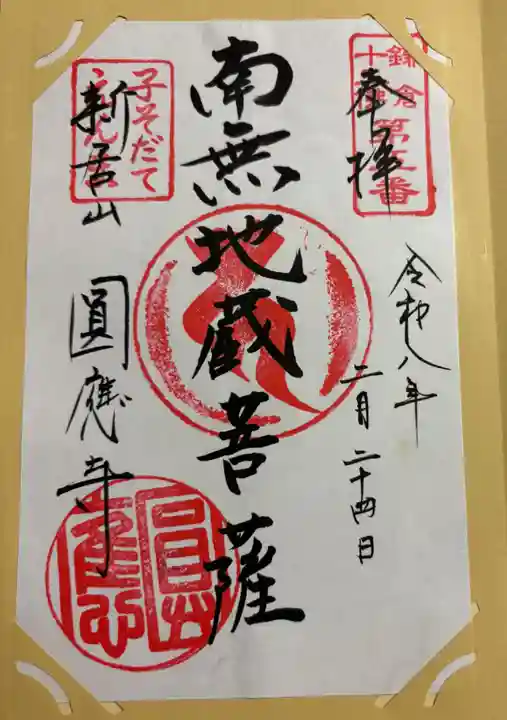 鎌倉
十
第五番
奉拝
令和八年
二月二十四日
南無地蔵菩薩
子そだて
新居山
圓應寺